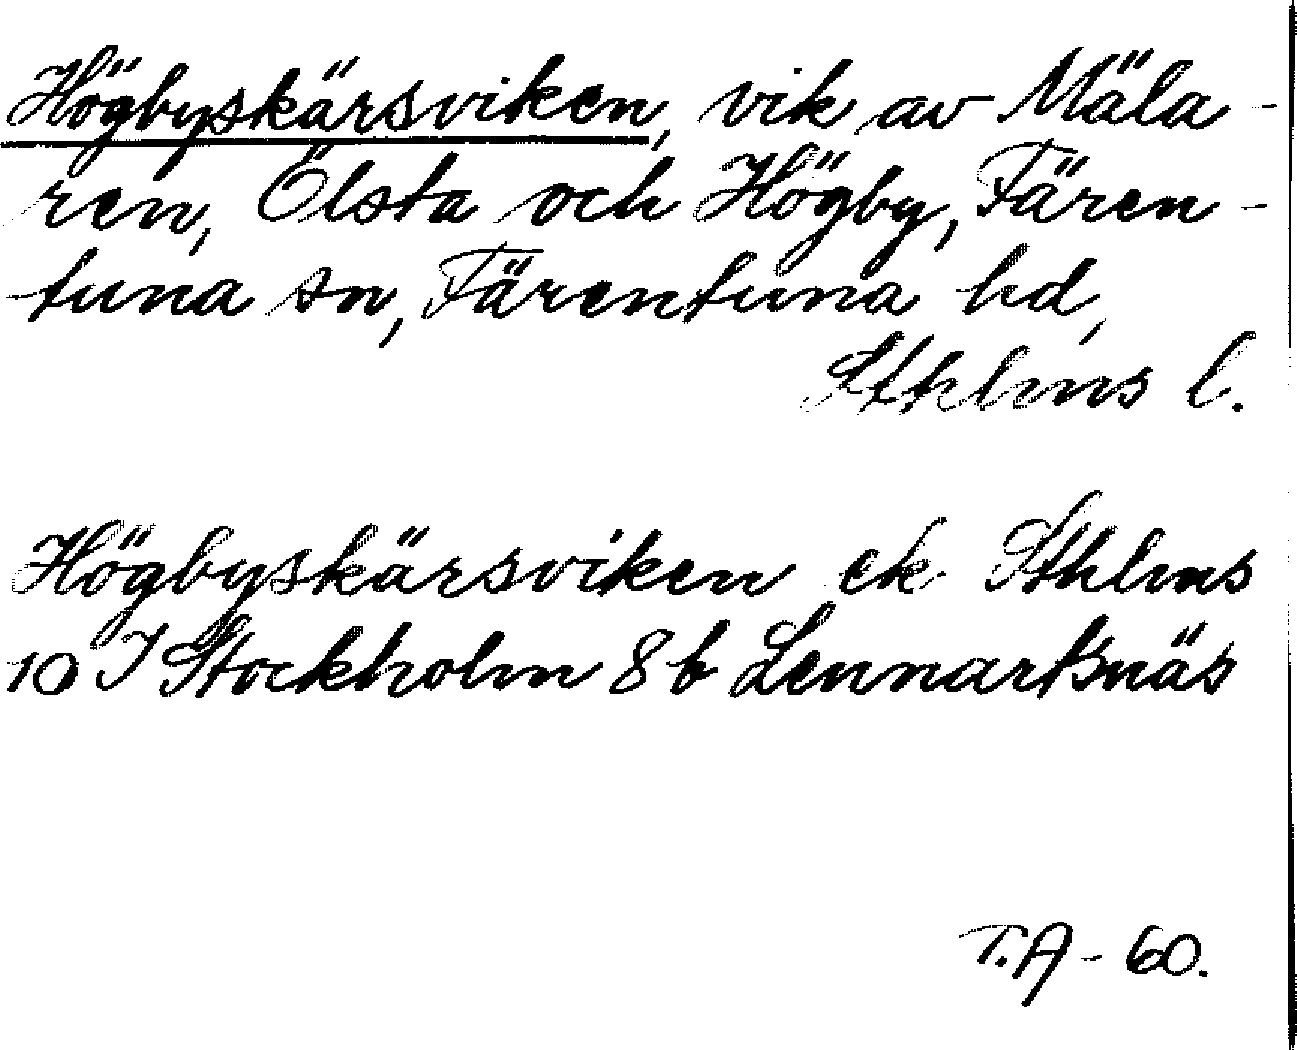 Högbyskärsviken, vik av Mäla-
ren, Ölsta och Högby, Fären-
tuna sn, Färentuna hd,
Sthlms l.
Högbyskärsviken ek Sthlms
10 I Stockholm 8 b Lennartsnäs
T.A - 60.